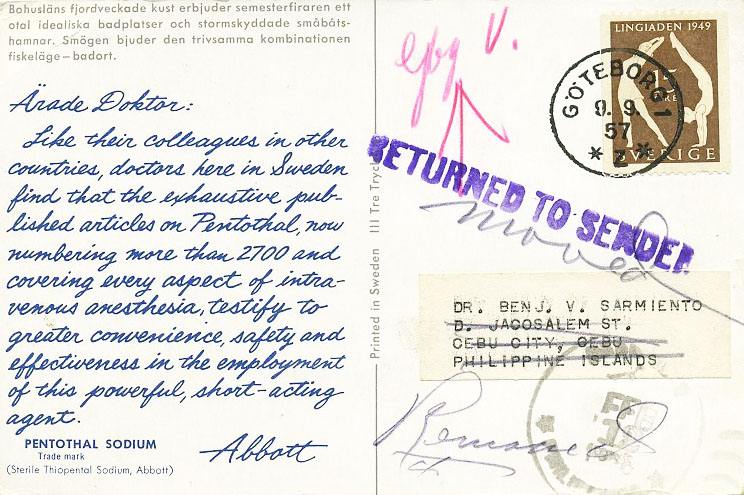 Bohusläns fjordveckade kust erbjuder semesterfiraren ett
otal idealiska badplatser och stormskyddade småbåts-
hamnar. Smögen bjuder den trivsamma kombinationen
fiskeläge – badort.
Ärade Doktor:
Like their colleagues in other
countries, doctors here in Sweden
find that the exhaustive pub-
lished articles on Pentothal, now
numbering more than 2700 and
covering every aspect of intra-
venous anesthesia, testify to
greater convenience, safety and
effectiveness in the employment
of this powerful, short-acting
agent.
PENTOTHAL SODIUM
Trade mark
(Sterile Thiopental Sodium, Abbott)
Abbott
Printed in Sweden III Tre Tryc
V.
LINGIADEN 1949
ÖRE
SVERIGE
GÖTEBORG 1
9. 9.
57
* Z *
RETURNED TO SENDER
moved
DR. BENJ. V. SARMIENTO
D. JACOSALEM ST.
CEBU CITY, CEBU
PHILIPPINE ISLANDS
Removed